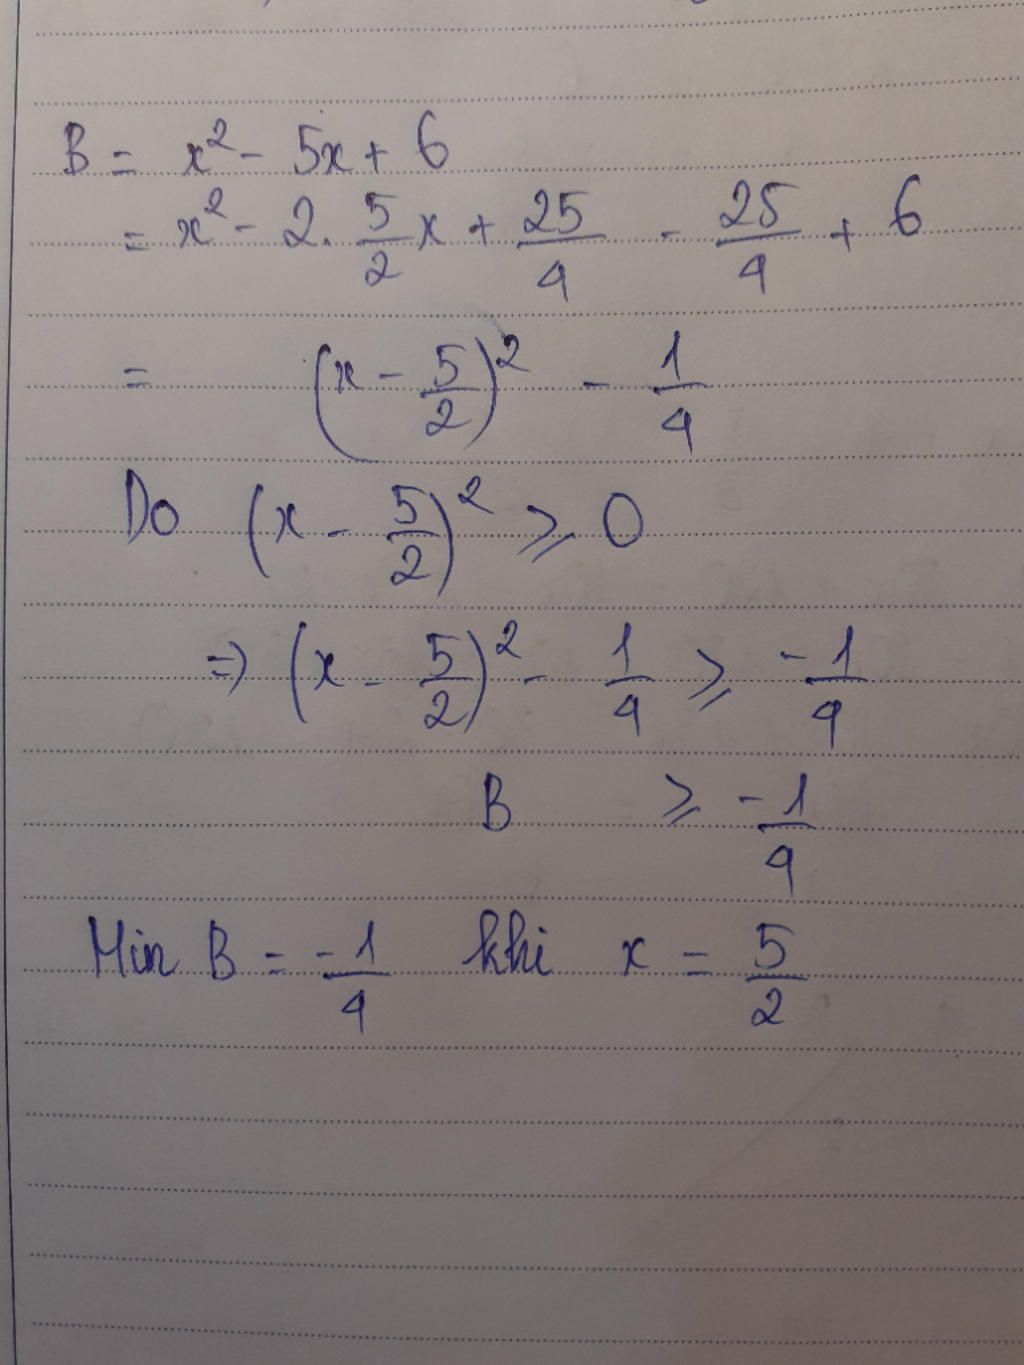 B = x² - 5x + 6
= x² - 2. 5/2 x + 25/4 - 25/4 + 6
= (x - 5/2)² - 1/4
Do (x - 5/2)² ⩾ 0
=> (x - 5/2)² - 1/4 ⩾ -1/4
B ⩾ -1/4
Min B = -1/4 khi x = 5/2